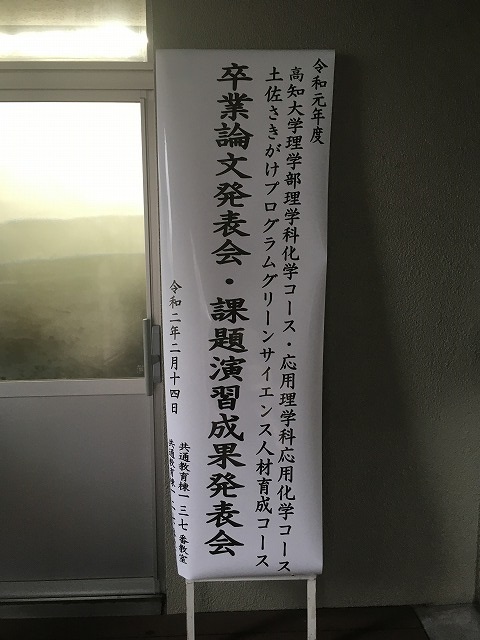 令和元年度
高知大学理学部理学科化学コース・応用理学科応用化学コース
土佐さきがけプログラムグリーンサイエンス人材育成コース
卒業論文発表会・課題演習成果発表会
令和二年二月十四日
共通教育棟一三七番教室
共通教育棟一